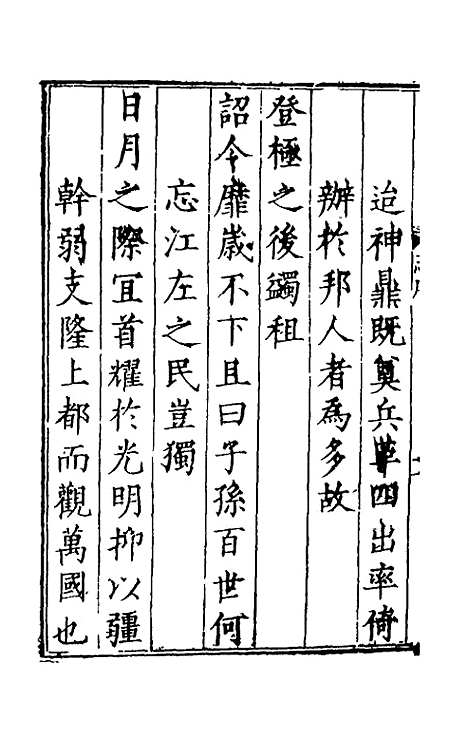 迨神鼎既奠兵革四出率倚
辦於邦人者為多故
登極之後蠲租
詔令靡歲不下且曰子孫百世何
忘江左之民豈獨
日月之際宜首耀於光明抑以疆
幹弱支隆上都而觀萬國也